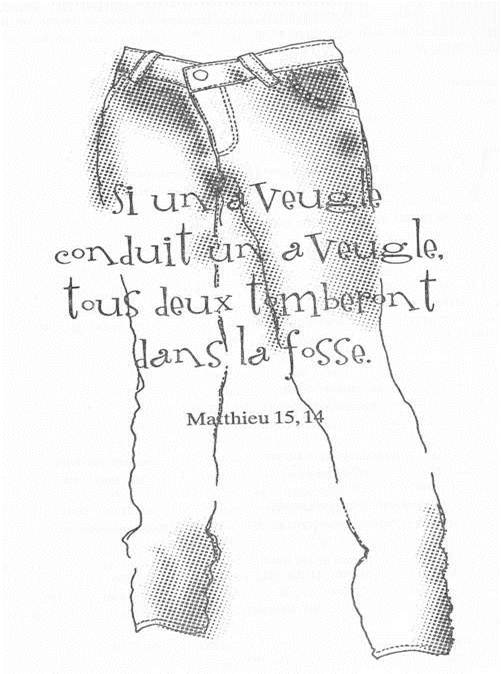 Si un aVeugle
conduit un aVeugle,
tous deux tomberont
dans la fosse.
Matthieu 15, 14